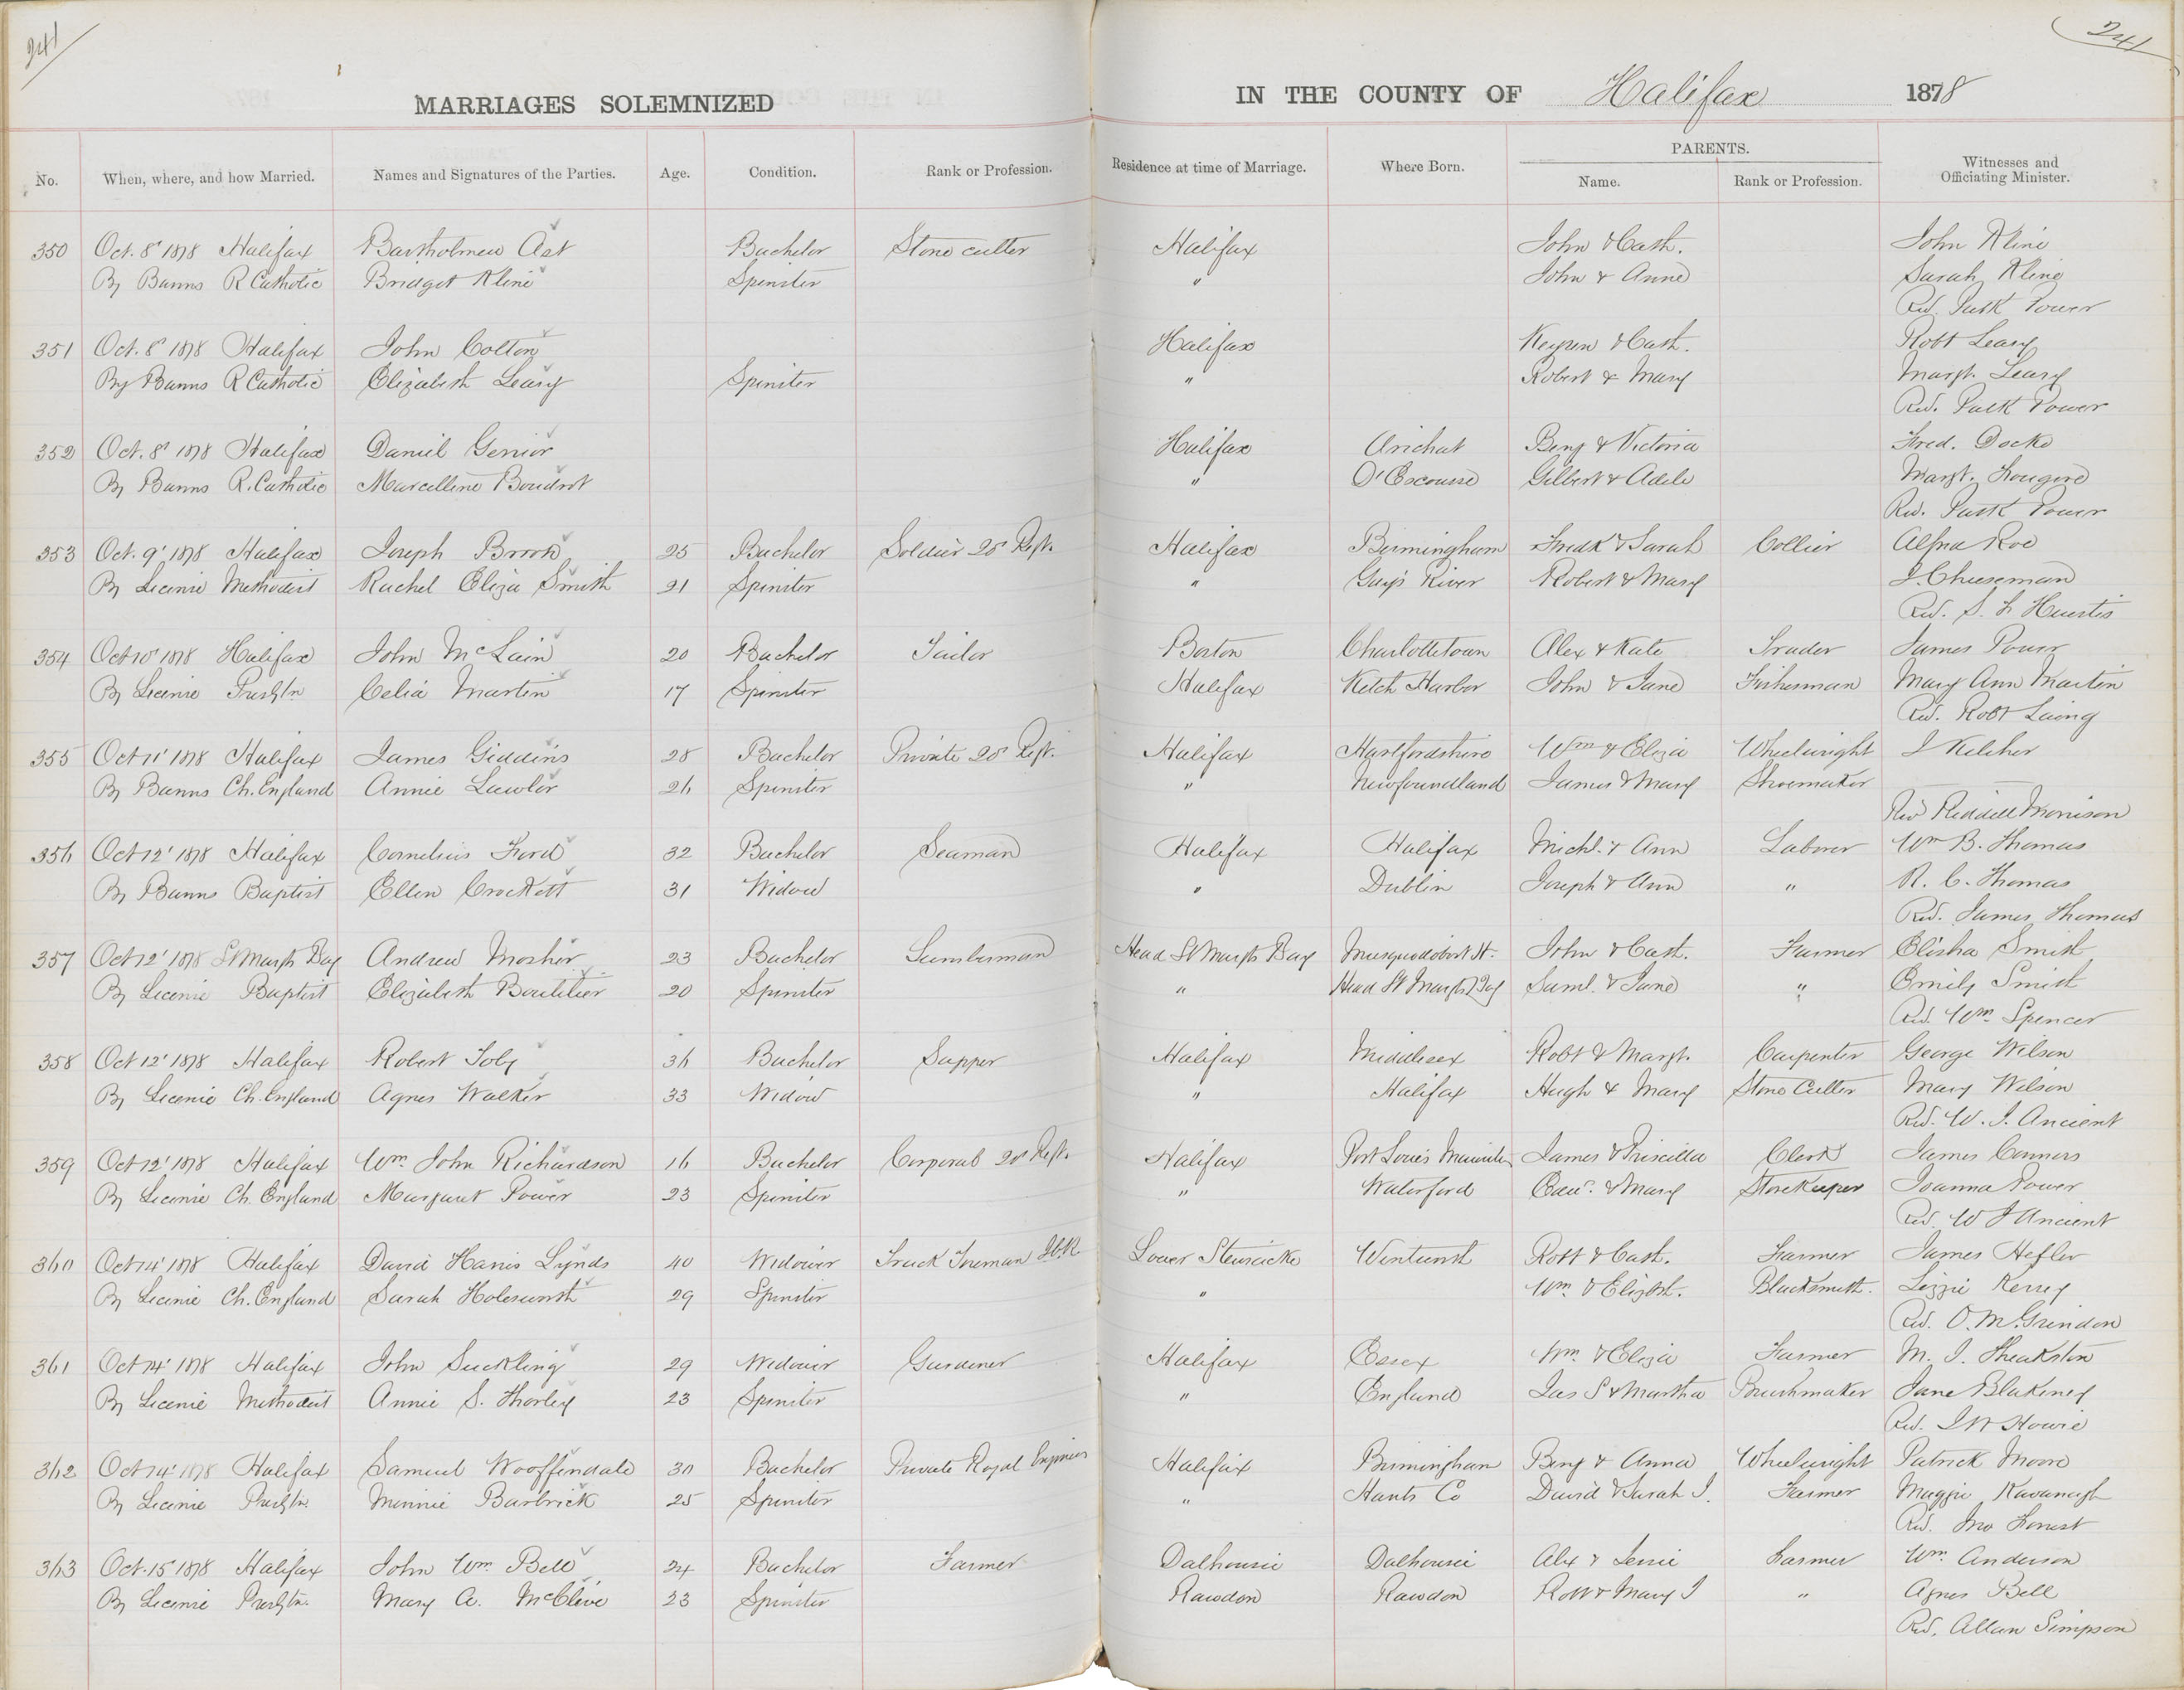 241
241
MARRIAGES SOLEMNIZED IN THE COUNTY OF Halifax 1878
No. When, where, and how Married. Names and Signatures of the Parties. Age. Condition. Rank or Profession. Residence at time of Marriage. Where Born. PARENTS. Name. Rank or Profession. Witnesses and Officiating Minister.
350 Oct. 8' 1878 Halifax Bartholmew Ast Bachelor Stone cutter Halifax John & Cath. John Kline
By Banns R Catholic Bridget Kline Spinster " John & Anne Sarah Kline
Rev. Patk Power
351 Oct. 8' 1878 Halifax John Colton Halifax & Cath. Robt Leary
By Banns R Catholic Elizabeth Leary Spinster " Robert & Mary Margt. Leary
Rev. Patk Power
352 Oct. 8' 1878 Halifax Daniel Genior Halifax Arichat Benj & Victoria Fred. Docke
By Banns R. Catholic Marcelline Boudrot " D'Escousse Gilbert & Adele Margt. Fougere
Rev. Patk Power
353 Oct. 9' 1878 Halifax Joseph Brook 25 Bachelor Soldier 20' Regt. Halifax Birmingham Fredk & Sarah Collier Alfred Roe
By Licence Methodist Rachel Eliza Smith 21 Spinster " Gays River Robert & Mary J. Cheeseman
Rev. S. F. Huestis
354 Oct 10' 1878 Halifax John McLain 20 Bachelor Tailor Boston Charlottetown Alex & Kate Trader James Power
By Licence Presbytn. Celia Martin 17 Spinster Halifax Ketch Harbor John & Jane Fisherman Mary Ann Martin
Rev. Robt Laing
355 Oct 11' 1878 Halifax James Giddins 28 Bachelor Private 20' Regt. Halifax Hartfordshire Wm & Eliza Wheelwright J Kelcher
By Banns Ch. England Annie Lawlor 26 Spinster " Newfoundland James & Mary Shoemaker
Rev Riddell Morrison
356 Oct 12' 1878 Halifax Cornelius Ford 32 Bachelor Seaman Halifax Halifax Michl. & Ann Laborer Wm B. Thomas
By Banns Baptist Ellen Crockett 31 Widow " Dublin Joseph & Ann " R. C. Thomas
Rev. James Thomas
357 Oct 12' 1878 St Margts Bay Andrew Mosher 23 Bachelor Lumberman Head St Margts Bay Musquodoboit H. John & Cath. Farmer Elisha Smith
By Licence Baptist Elizabeth Boutilier 20 Spinster " Head St Margts Bay Saml. & Jane " Emily Smith
Rev. Wm. Spencer
358 Oct 12' 1878 Halifax Robert Toby 36 Bachelor Sapper Halifax Middlesex Robt & Margt. Carpenter George Wilson
By Licence Ch. England Agnes Walker 33 Widow " Halifax Hugh & Mary Stone Cutter Mary Wilson
Rev. W. J. Ancient
359 Oct 12' 1878 Halifax Wm. John Richardson 16 Bachelor Corporal 20' Regt. Halifax Port Louis Mauritius James & Priscilla Clerk James Connors
By Licence Ch. England Margaret Power 23 Spinster " Waterford Edw. & Mary StoreKeeper Joanna Power
Rev. W J Ancient
360 Oct 14' 1878 Halifax David Harris Lynds 40 Widower Track Foreman I.C.R. Lower Stewiacke Robt & Cath. Farmer James Hefler
By Licence Ch. England Sarah Holesworth 29 Spinster " Wm. & Elizbth. Blacksmith. Lizzie
Rev. O. M. Grindon
361 Oct 14' 1878 Halifax John Suckling 29 Widower Gardener Halifax Essex Wm. & Eliza Farmer M. J. Theakston
By Licence Methodist Annie S. Thorley 23 Spinster " England Jas S & Martha Brushmaker Jane Blakeney
Rev. Howie
362 Oct 14' 1878 Halifax Samuel Wooffindale 30 Bachelor Private Royal Engineers Halifax Birmingham Benj & Anna Wheelwright Patrick Moore
By Licence Presbytn. Minnie Barbrick 25 Spinster " Hants Co David & Sarah J. Farmer Maggie Kavanagh
Rev. Jno Forrest
363 Oct. 15' 1878 Halifax John Wm. Bell 24 Bachelor Farmer Dalhousie Dalhousie Alex & Jessie Farmer Wm. Anderson
By Licence Presbytn. Mary A. McClive 23 Spinster Rawdon Rawdon Robt & Mary J " Agnes Bell
Rev. Allan Simpson